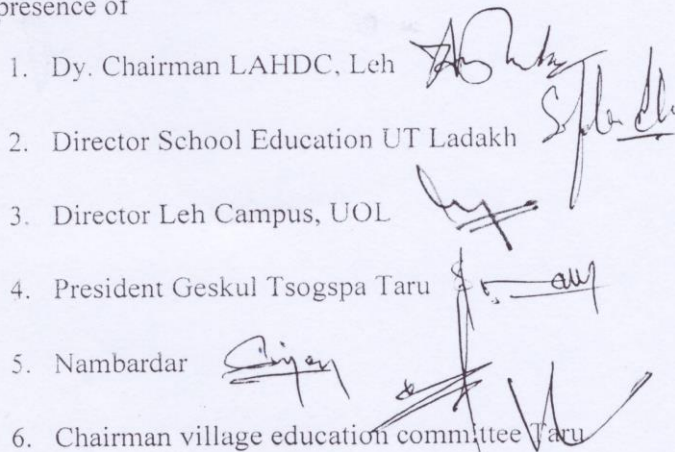 presence of
1. Dy. Chairman LAHDC, Leh
2. Director School Education UT Ladakh
3. Director Leh Campus, UOL
4. President Geskul Tsogspa Taru
5. Nambardar
6. Chairman village education committee Taru